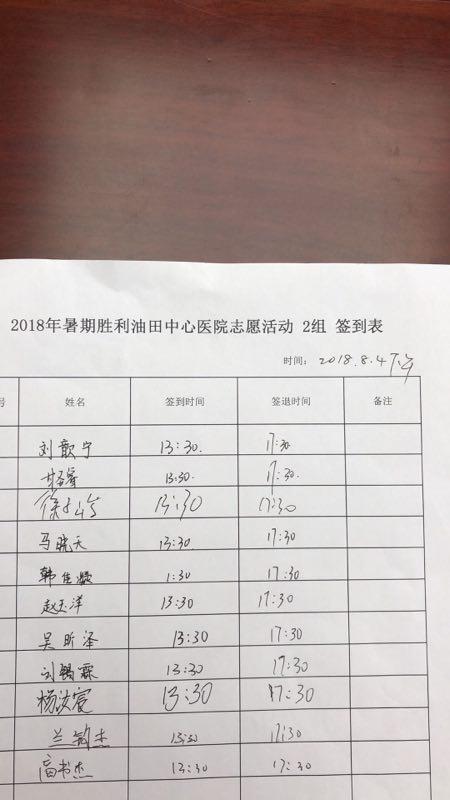 2018年暑期胜利油田中心医院志愿活动 2组 签到表
时间：2018.8.4下午
号 姓名 签到时间 签退时间 备注
刘歆宁 13:30. 17:30
13:30. 17:30.
徐 13:30 17:30
马晓天 13:30. 17:30
韩佳凝 1:30 17:30
赵玉洋 13:30 17:30
吴昕泽 13:30 17:30
刘锡霖 13:30 17:30
杨汝宸 13:30 17:30
兰钧杰 13:30 17:30
高书杰 13:30 17:30